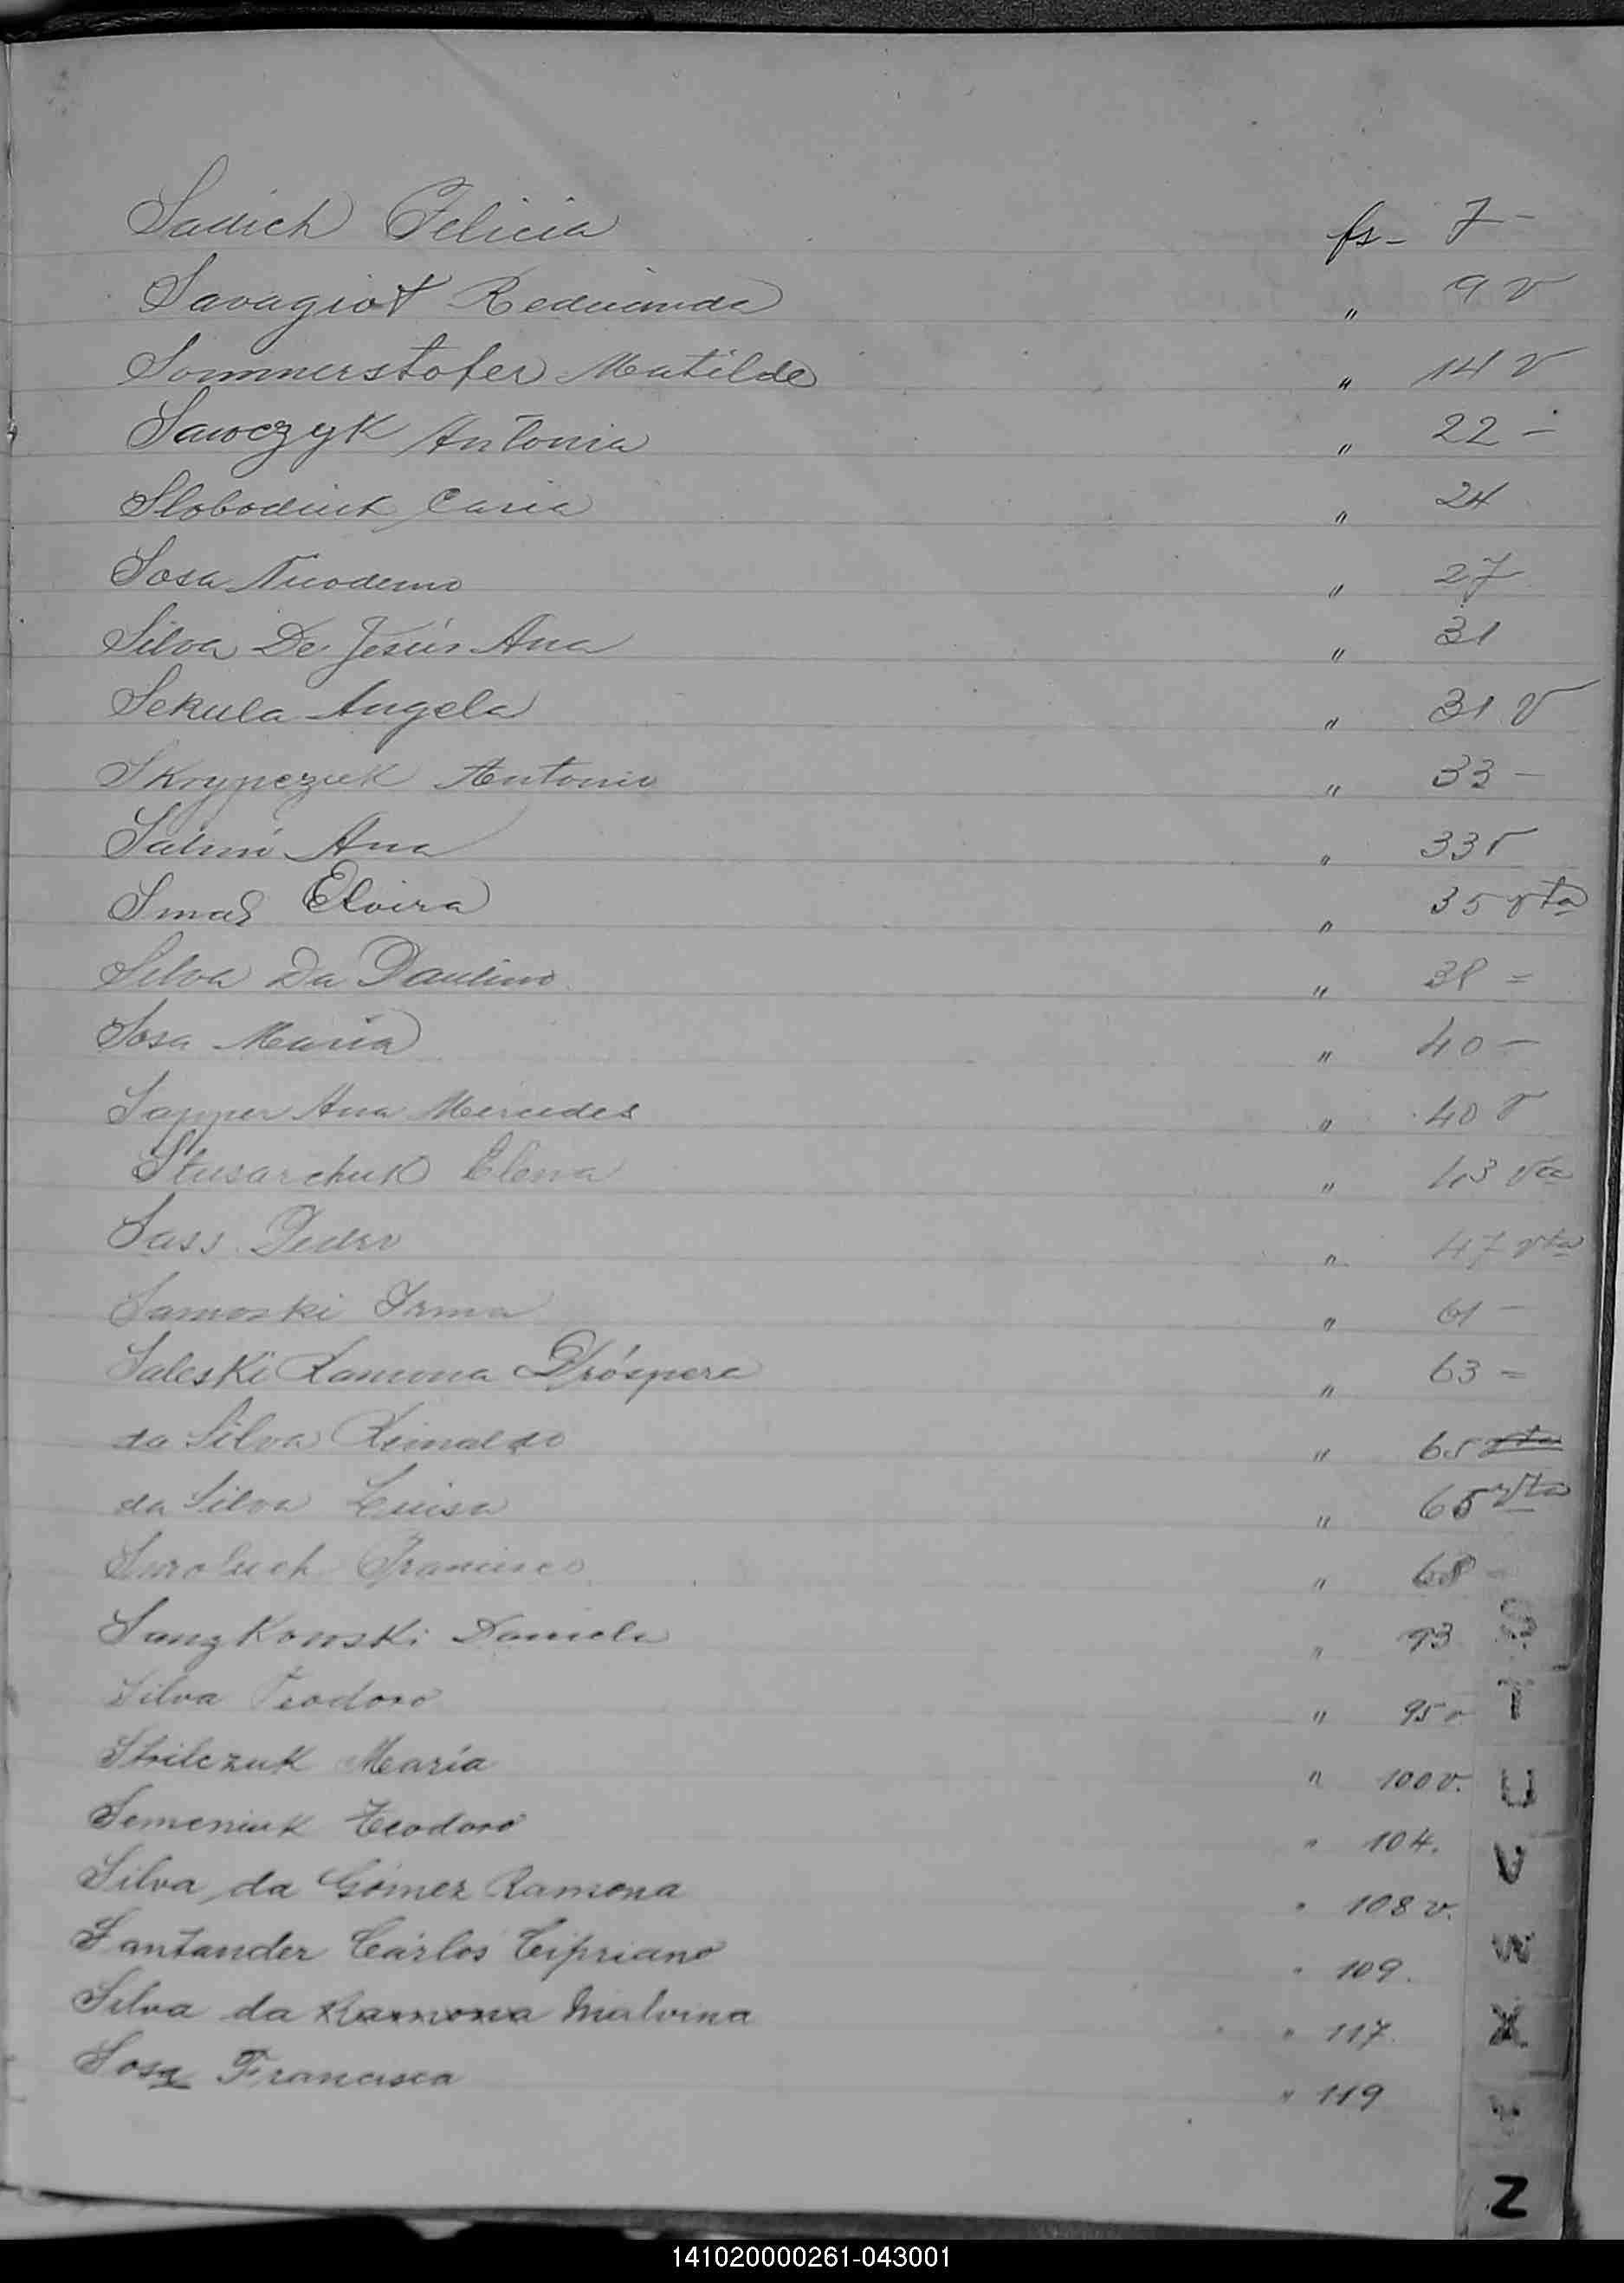 Sadich Felicia fs- 7-
Savagiot Redminda " 9 v
Sommerstofer Matilde " 14 v
Sawczyk Antonia " 22 -
Slobodiuk Caria " 24
Sosa Nicodemo " 27
Silva De Jesús Ana " 31
Sekula Angela " 31 v
Skrypczuk Antonio " 33 -
Ana " 33 v
Elvira " 35 vta
Silva Da Paulino " 38 =
Sosa María " 40 -
Sapper Ana Mercedes " 40 v
Slusarchuk Elena " 43 vta
Sass Pedro " 47 vta
Samoski Irma " 61 -
Saleski Ramona Próspera " 63 =
da Silva Reinaldo " 65 vta
da Silva Luisa " 65 vta
Francisco " 68 -
Daniela " 93
Silva Teodoro " 95 v
Strilczuk María " 100 v.
Semeniuk Teodoro " 104.
Silva da Gómez Ramona " 108 v.
Santander Cárlos Cipriano " 109.
Silva da Ramona Malvina " 117.
Sosa Francisca " 119
S
T
U
V
W
X
Y
Z
141020000261-043001